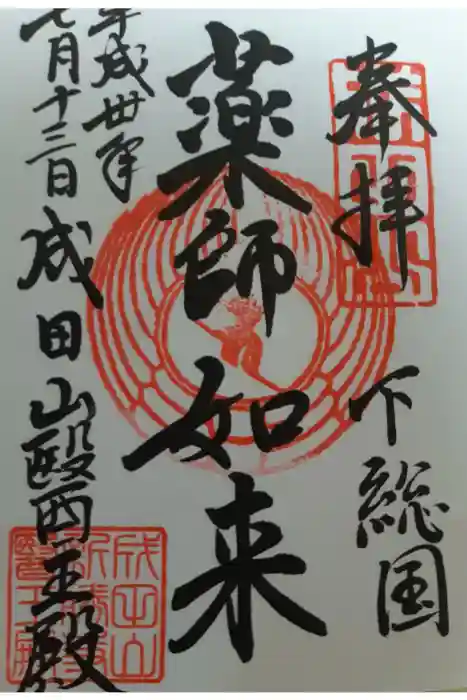 奉拝
下総国
薬師如来
平成卅年
七月十三日
成田山醫王殿
成田山
新勝寺
醫王殿